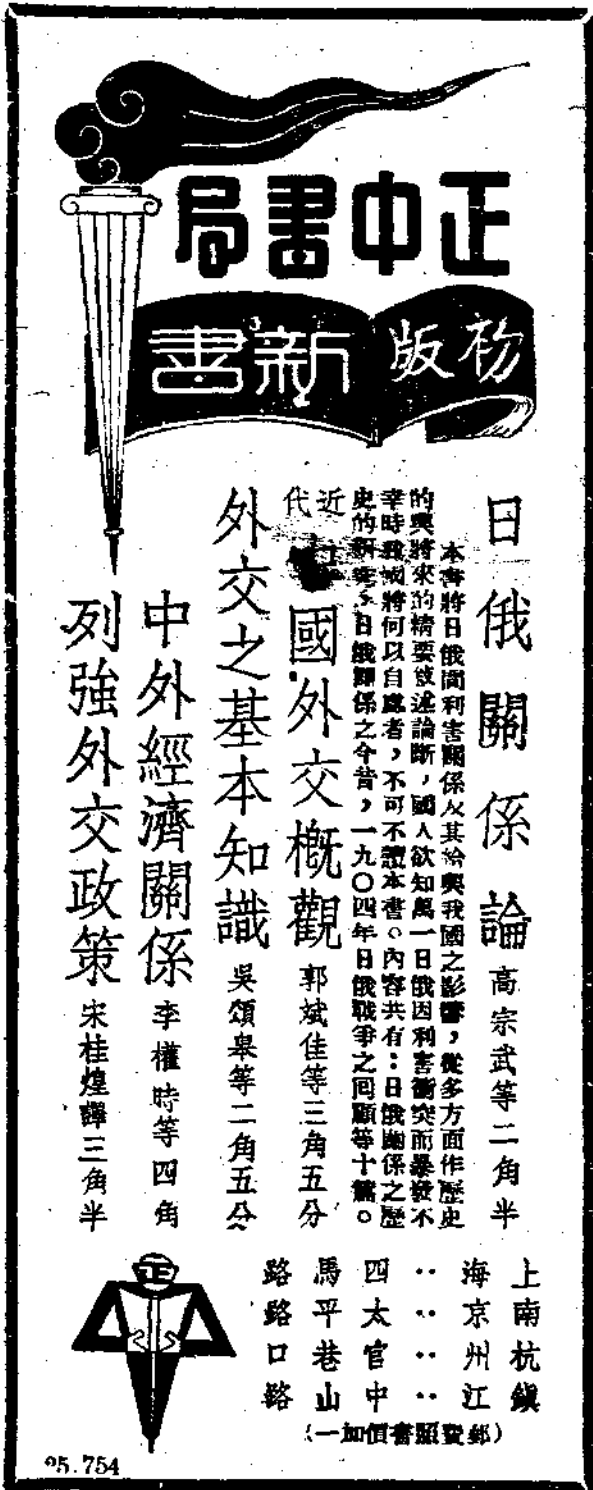 正中書局
初版
新書
日俄關係論 高宗武等二角半
本書將日俄間利害關係及其給與我國之影響，從多方面作歷史
的與將來的精要敘述論斷，國人欲知萬一日俄因利害衝突而暴發不
幸時我國將何以自處者，不可不讀本書。內容共有：日俄關係之歷
史的研究，日俄關係之今昔，一九〇四年日俄戰爭之回顧等十篇。
近代國外交概觀 郭斌佳等三角五分
外交之基本知識 吳頌皋等二角五分
中外經濟關係 李權時等四角
列強外交政策 宋桂煌譯三角半
上海：四馬路
南京：太平路
杭州：官巷口
鎮江：中山路
（郵費照書價加一）
正
25.754